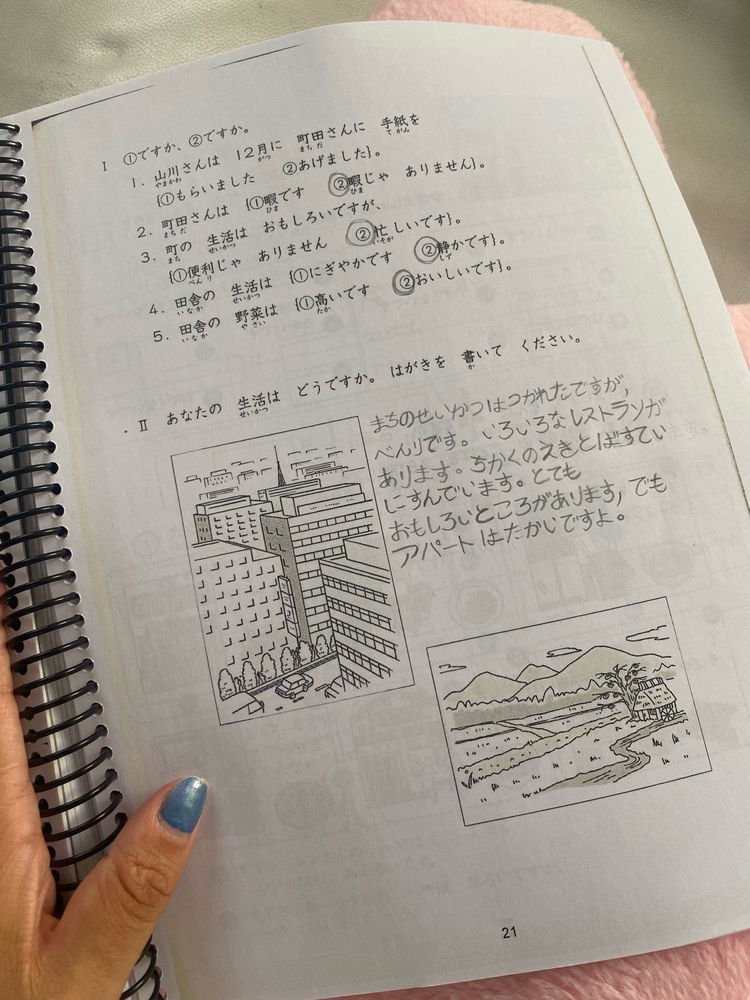 I ①ですか、②ですか。
1. 山川さんは 12月に 町田さんに 手紙を
やまかわ がつ まちだ てがみ
{①もらいました ②あげました}。
2. 町田さんは {①暇です ②暇じゃ ありません}。
まちだ ひま ひま
3. 町の 生活は おもしろいですが、
まち せいかつ
{①便利じゃ ありません ②忙しいです}。
べんり いそが
4. 田舎の 生活は {①にぎやかです ②静かです}。
いなか せいかつ しず
5. 田舎の 野菜は {①高いです ②おいしいです}。
いなか やさい たか
II あなたの 生活は どうですか。はがきを 書いて ください。
せいかつ か
まちのせいかつはつかれたですが,
べんりです。いろいろなレストランが
あります。ちかくのえきとばすてい
にすんでいます。とても
おもしろいところがあります,でも
アパートはたかいですよ。
21